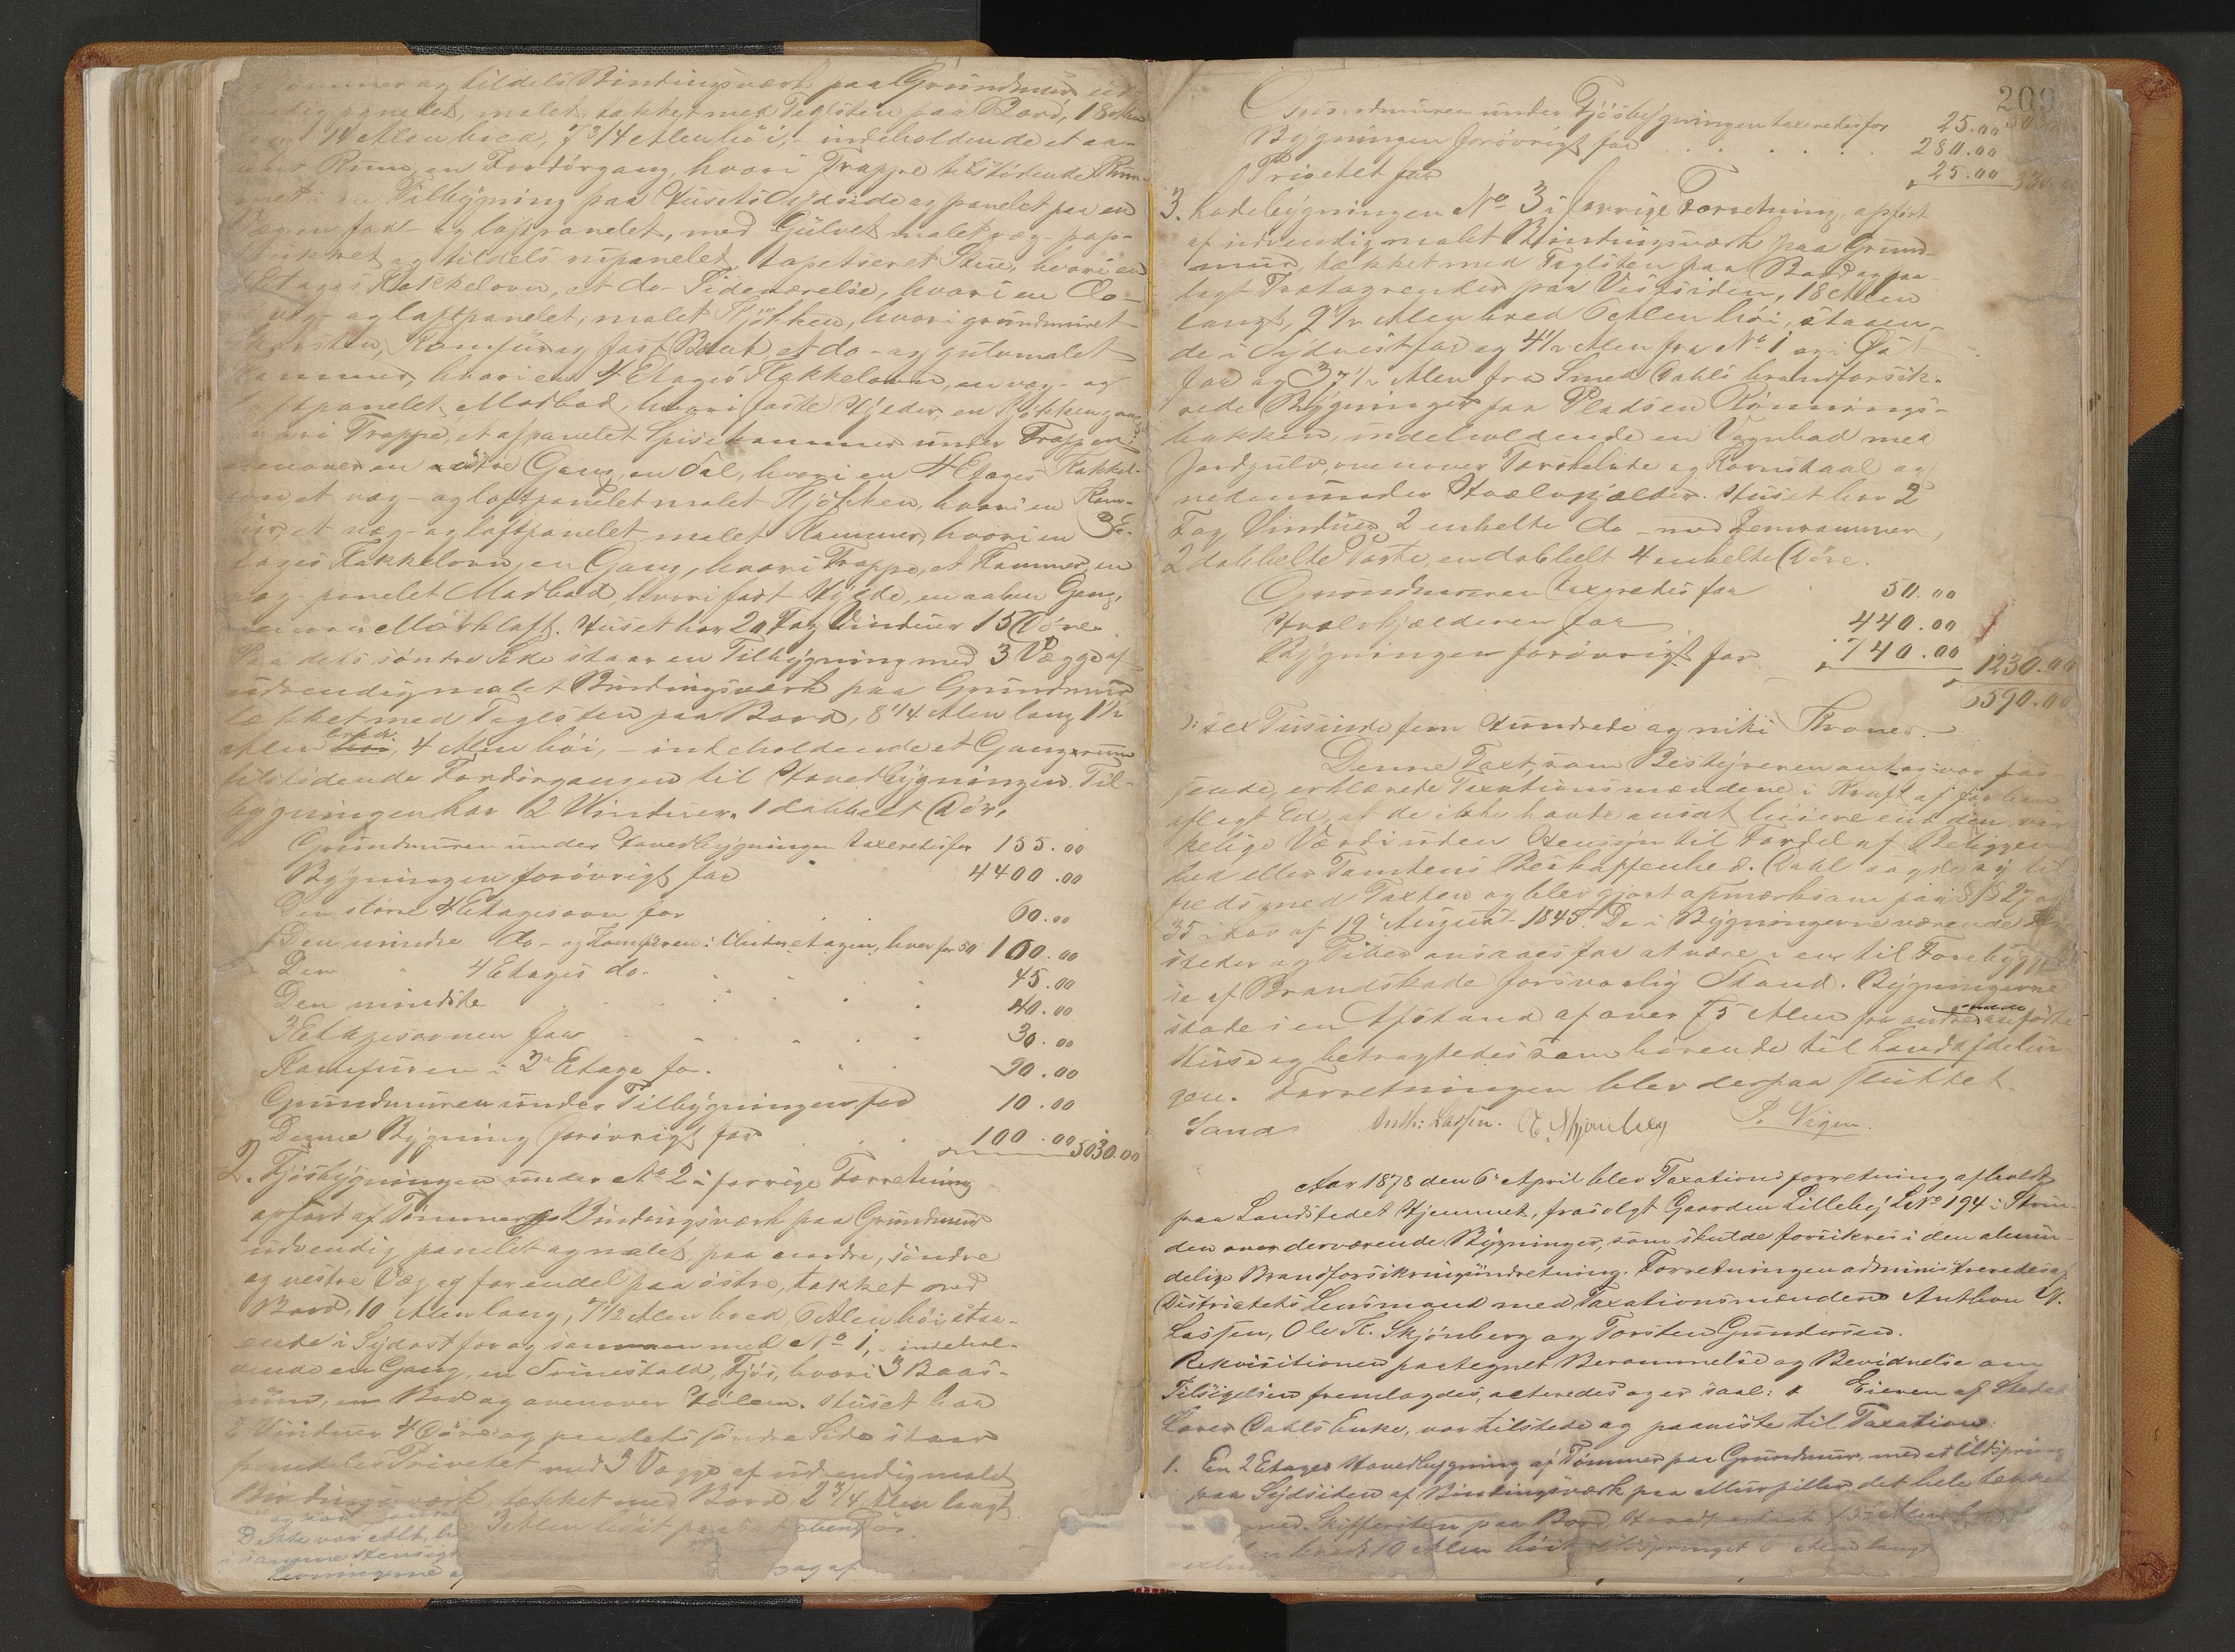 Tømmer og tildels Bindingsværk paa Grundmur ud-
vendig panelet, malet, tækket med Taglsten paa Bord, 18 Alen
lang 14 Alen bred, 7 3/4 Alen høi, - indeholdende et aa-
bent Rum, en Fordørgang, hvori Trappe
met i en Tilbygning paa Husets Sydside og panelet paa en
Væg, en fad- og loftpanelet, med Gulvet malet væg- pap-
trukket og tildels uspanelet, tapetseret Stue, hvori en
Etages Kakkelovn, et do- Sideværelse, hvori en Do-
væg- og loftpanelet, malet Kjøkken, hvori grundmuret
Skorsten, Komfur og fast Bænk, et do- og gulvmalet
Kammer, hvori en 4 Etages Kakkelovn, en væg- og
loftpanelet Madbod, hvori faste Hylder, en Kjøkkengang
hvori Trappe, et afpanelet Spisekammer under Trappen;
ovenover en østre Gang, en Sal, hvori en 4 Etages Kakkel-
ovn et væg- og loftpanelet malet Kjøkken, hvori en Kom-
fur, et væg- og loftpanelet malet Kammer, hvori en 3 E-
tages Kakkelovn, en Gang, hvori Trappe, et Kammer, en
væg-panelet Madbod, hvori fast Hylde, en aaben Gang,
ovenover Mørkloft. Huset har 20 Fag Vinduer 15 Døre.
Paa dets søndre Side staar en Tilbygning med 3 Vægge af
udvendig malet Bindingsværk paa Grundmur
tækket med Taglsten paa Bord, 8 1/4 Alen lang 1 1/2
Alen bred, 4 Alen høi, - indeholdende et Gangrum
tilstødende Fordørgangen til Hovedbygningen. Til-
bygningen har 2 Vinduer, 1 dobbelt Dør.
Grundmuren under Hovedbygningen taxeredes for 155.00
Bygningen forøvrigt for 4400.00
Den større 4 Etagesovn for 60.00
Den mindre do- og Komfuren i Underetagen, hver for 50 100.00
Den " 4 Etages do. 45.00
Den mindste 40.00
3 Etagesovnen for 30.00
Komfuren i 2 Etage for. 90.00
Grundmuren under Tilbygningen for 10.00
Denne Bygning forøvrigt for 100.00 5030.00
2. Fjøsbygningen under No 2 i forrige Forretning
opført af Tømmer og Bindingsværk paa Grundmur
udvendig panelet og malet paa nordre, søndre
og vestre Væg og for endel paa østre, tækket med
Bord, 10 Alen lang, 7 1/2 Alen bred, 6 Alen høi, staa-
ende i Sydost for og sammen med No 1, - indehol-
dende en Gang, en Svinestald, Fjøs, hvori 3 Baas-
rum, en Bod og ovenover Hølem. Huset har
Vinduer 4 Døre og paa dets søndre Side staar
Privetet med 3 Vægge af udvendig malet
Bindingsværk, tækket med Bord 2 3/4 Alen langt
3 Alen høit paa
Dette var Alt,
i samme Henseende
209
Grundmuren under Fjøsbygningen taxeredes for 25.00
Bygningen forøvrigt for 280.00
Privetet for 25.00 330.00
3. Ladebygningen No 3 i forrige Forretning, opført
af udvendig malet Bindingsværk paa Grund-
mur, tækket med Taglsten paa Bord og paa-
lagt Trætagrender paa Vestsiden, 18 Alen
langt, 9 1/2 Alen bred 6 Alen høi, staaen-
de i Sydvest for og 4 1/2 Alen fra No 1 og i Øst
for og 37 1/2 Alen fra Smed Dahls brandforsik-
rede Bygninger paa Pladsen Rønnings-
bakken, indeholdende en Vognbod med
Jordgulv, ovenover Tærskelade og Kornstaal og
nedenunder Hvælvkjælder. Huset har 2
Fag Vinduer 2 enkelte do- med Jernrammer,
2 dobbelte Porte, en dobbelt 4 enkelte Døre.
Grundmuren taxeredes for 50.00
Hvælvkjælderen for 440.00
Bygningen forøvrigt for 740.00 1230.00
6590.00
): sex Tusinde fem Hundrede og nitti Kroner. -
Denne Taxt, som Bestyreren antog var pas-
sende, erklærede Taxationsmændene i Kraft af før hen
aflagt Ed, at de ikke havde ansat høiere end den vir-
kelige Værdi uden Hensyn til Fordel af Beliggen-
hed eller Tomtens Beskaffenhed. Dahl sagde sig til-
freds med Taxten og blev gjort opmærksom paa §§ 27 og
35 i Lov af 19 August 1845. De i Bygningerne værende Ild-
steder og Piber ansaaes for at være i en til Forebyggel-
se af Brandskade forsvarlig Stand. Bygningerne
stode i en Afstand af over 75 Alen fra andre anførte
Huse og betragtedes som hørende til Landafdelin-
gen. Forretningen blev derpaa sluttet.
Sand Anth: Lassen. O. Skjønberg P. Vigen.
Aar 1878 den 6 April blev Taxationsforretning afholdt
paa Landstedet Hjemmet, frasolgt Gaarden Lilleby L No 194 i Strin-
den over derværende Bygninger, som skulde forsikres i den almin-
delige Brandforsikringsindretning. Forretningen administreredes af
Districtets Lensmand med Taxationsmændene Anthon W.
Lassen, Ole K. Skjønberg og Torsten Gundersen.
Rekvisitionen paategnet Berammelse og Bevidnelse om
Tilsigelsen fremlagdes, acteredes og er saal: Eieren af Stedet
Lorez Dahls Enke, var tilstede og paaviste til Taxation:
1. En 2 Etages Hovedbygning af Tømmer paa Grundmur, med et Udspring
paa Sydsiden af Bindingsværk paa Murpiller, det hele tækket
med Skiffersten paa Bord, 15 Alen
bredt 10 Alen høit, Udspringet 6 Alen langt